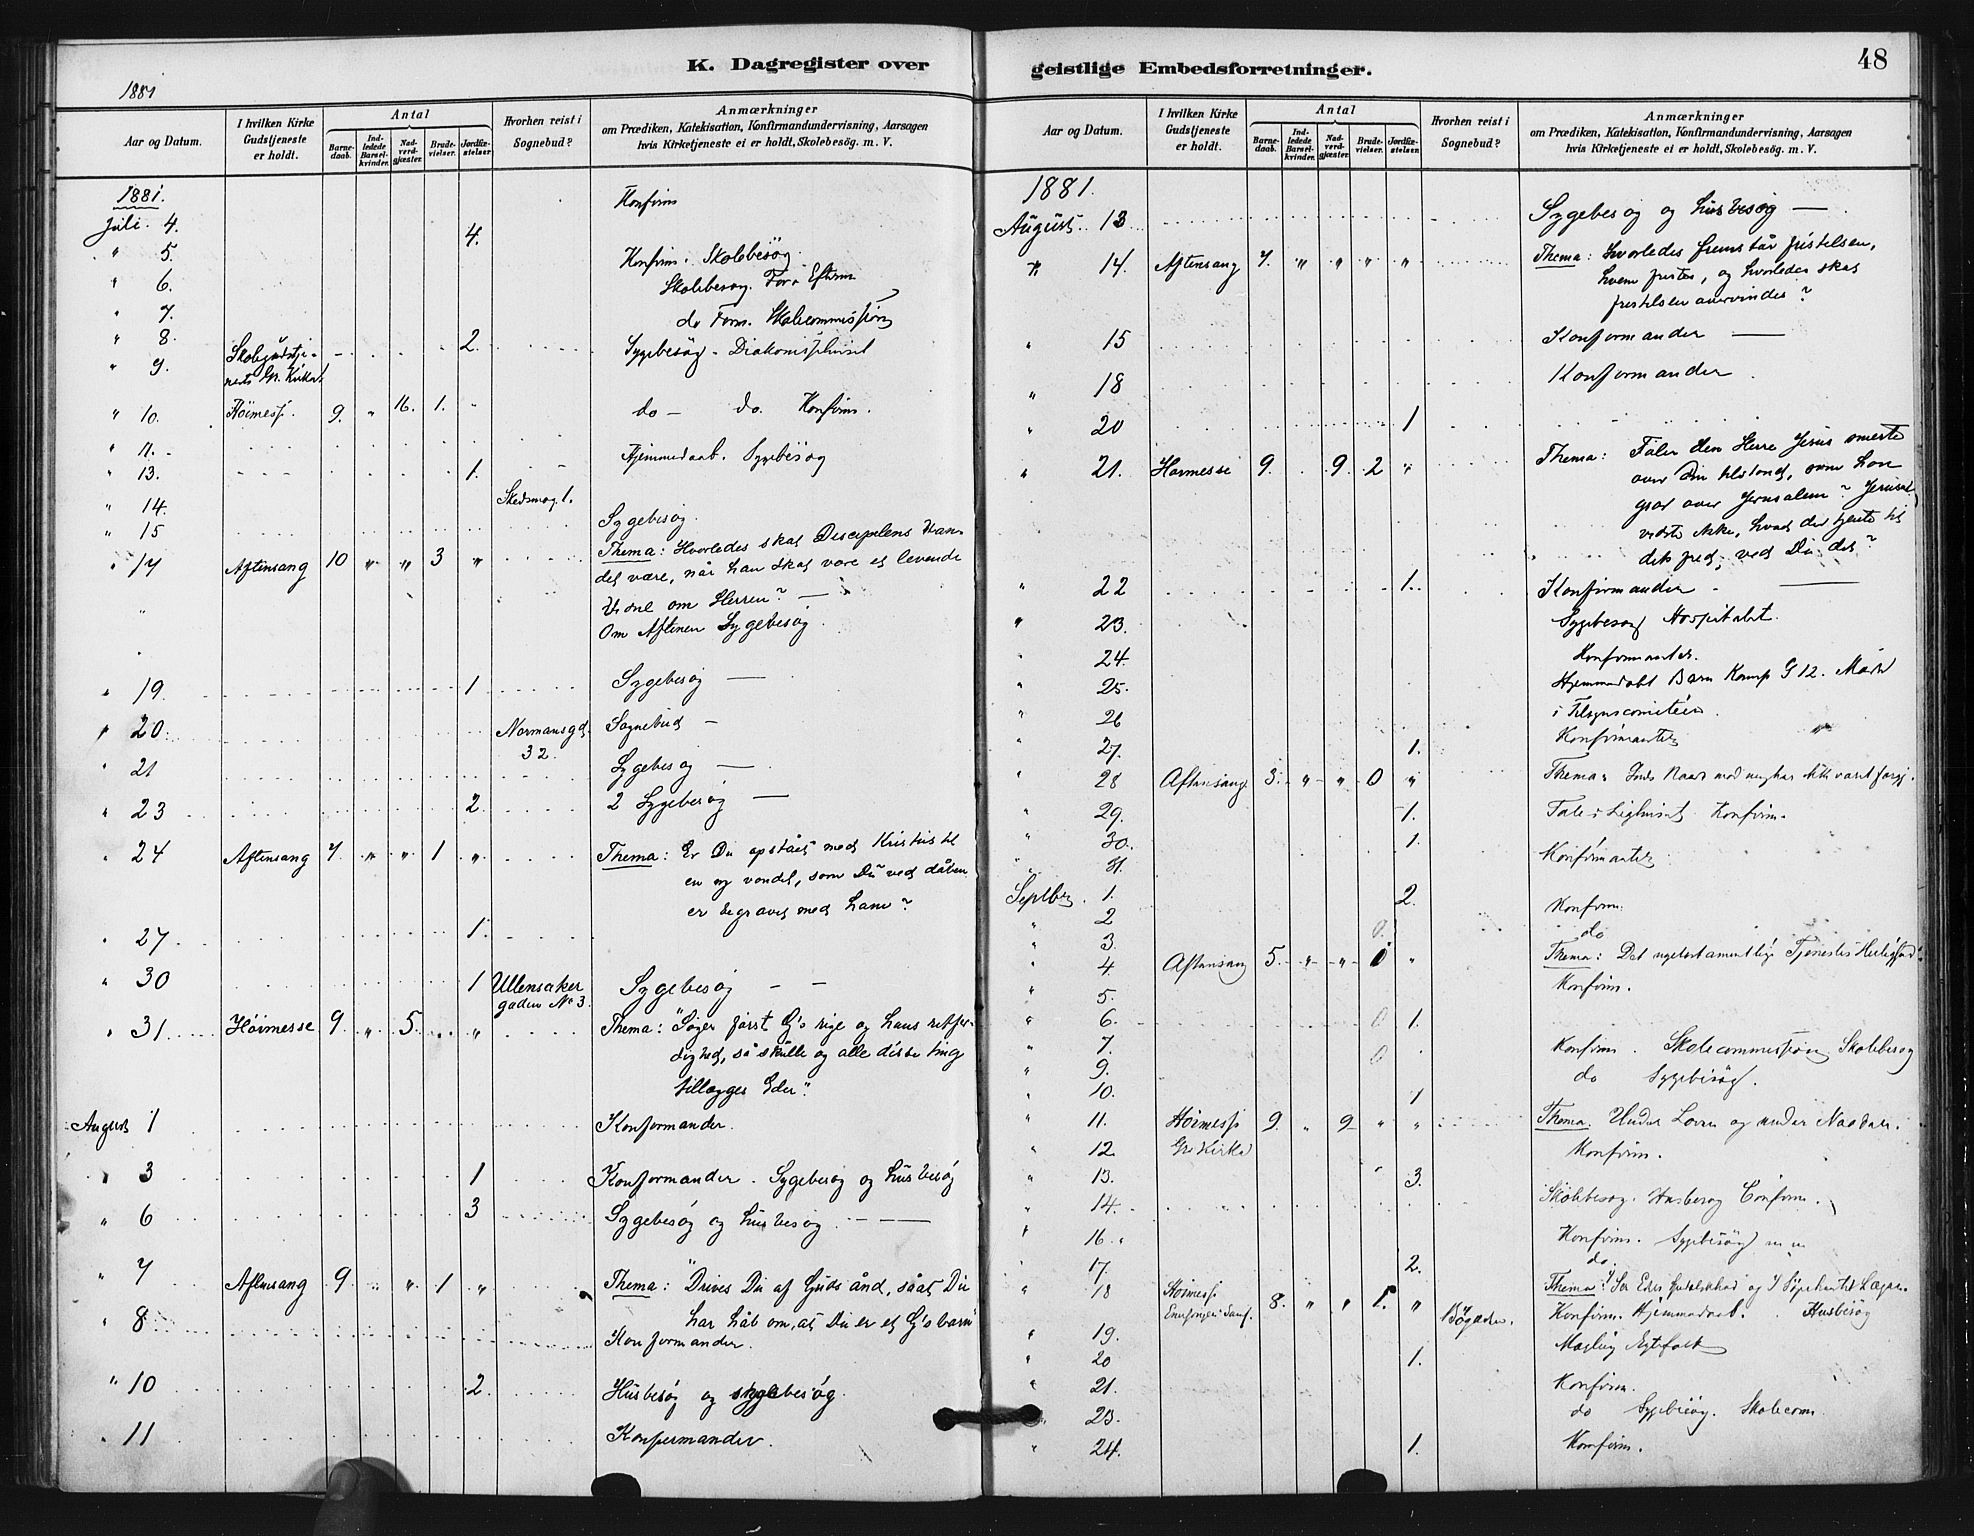 K. Dagregister over
1881
Aar og Datum.
I hvilken Kirke Gudstjeneste er holdt.
Antal
Barnedaab.
Indledede Barselkvinder.
Nadverdgjæster.
Brudevielser.
Jordfæstelser
Hvorhen reist i Sognebud?
Anmærkninger
om Prædiken, Katekisation, Konfirmandundervisning, Aarsagen
hvis Kirketjeneste ei er holdt, Skolebesøg. m. V.
1881.
Juli. 4. 4. Konfirm
" 5. Konfirm. Skolebesøg.
" 6. Skolebesøg. For. Efterm
" 7. do Form. Skolecommission
" 8. 2. Sygebesøg - Diakonissehuset
" 9.
" 10. Høimesse. 9. " 16. 1. " do - do. Konfirm.
" 11. -
" 13. 1. Hjemmedaab. Sygebesøg
" 14. Skedsmog. 1.
" 15 Sygebesøg.
" 17 Aftensang 10 " " 3 " Thema: Hvorledes skal Disciplens Van-
del være, når han skal være et levende
Vidne om Herren? —
Om Aftenen Sygebesøg.
" 19. 1 Sygebesøg —
" 20. Normansgd. 32. Sognebud —
" 21 Sygebesøg —
" 23 2 2 Sygebesøg —
" 24 Aftensang 7. " " 1 " Thema: Er Du opstået med Kristus til
en ny vandel, som Du ved dåben
er begravet med ham?
" 27. 1.
" 30 1 Ullensaker gaden No 3. Sygebesøg — —
" 31. Høimesse 9. " 5. " Thema: "Søger først G's rige og hans retfær-
dighed, så skulle og alle disse ting
tillægges Eder".
August 1 Konformander.
" 3 1 Konformander. Sygebesøg og husbesøg
" 6 3 Sygebesøg og husbesøg. —
" 7 Aftensang 9. " " 1 " Thema: "Drives Du af Guds ånd, såat Du
har håb om, at Du er et G's barn
" 8 Konformander.
" 10 2 Husbesøg og sygebesøg.
" 11 Konformander.
geistlige Embedsforretninger.
48
Aar og Datum.
I hvilken Kirke Gudstjeneste er holdt.
Antal
Barnedaab.
Indledede Barselkvinder.
Nadverdgjæster.
Brudevielser.
Jordfæstelser
Hvorhen reist i Sognebud?
Anmærkninger
om Prædiken, Katekisation, Konfirmandundervisning, Aarsagen
hvis Kirketjeneste ei er holdt, Skolebesøg. m. V.
1881.
August 13 Sygebesøg og husbesøg —
" 14. Aftensang 7. " " " " Thema: hvorledes fremstår fristelsen,
hvem frister, og hvorledes skal
fristelsen overvindes?
" 15 Konformander —
" 18 Konformander
" 20 1
" 21. Høimesse 9. 9. 2 " Thema: Føler den Herre Jesus smerte
over Din tilstand, som han
græd over Jerusalem? Jerusal.
vidste ikke, hvad der tjente til
dets fred; ved Du det?
" 22 1. Konformander —
" 23. Sygebesøg Hospitalet.
" 24. Konfirmanter.
" 25. Hjemmedøbt Barn Kamp G 12. Møde
" 26 i Tilsynscomiteen.
" 27. 1. Konfirmanter
" 28 Aftensang. 3. " " 0 " Thema:
" 29. 1. Tale i Lighuset. Konfirm.
" 30. 1.
" 31. Konfirmanter
Septbr. 1. 2. Konfirm.
" 2 do
" 3. 0.
" 4 Aftensang 5. " " 0 " Thema: Det nytestamentlige Tjenestes Herlighed
" 5. Konfirm.
" 6. 0 1.
" 7. 0 Konfirm. Skolecommission Skolebesøg
" 9. do Sygebesøg.
" 10. 1
" 11. Høimesse 9. " 9 " " Thema. Under Loven og under Naaden.
" 12. Gr. Kirke Konfirm.
" 13. 3.
" 14. Skolebesøg. Husbesøg Confirm.
" 16. Konfirm. Sygebesøg m. m
" 17. 2. do
" 18 Høimesse 8. " " 1. " Thema:
" 19. Bøgaden. Konfirm. Hjemmedaab. Husbesøg
" 20 1. Mægling Egtefolk
" 21. Konfirm.
" 23. do Sygebesøg. Skolecom
" 24. 1. Konfirm.